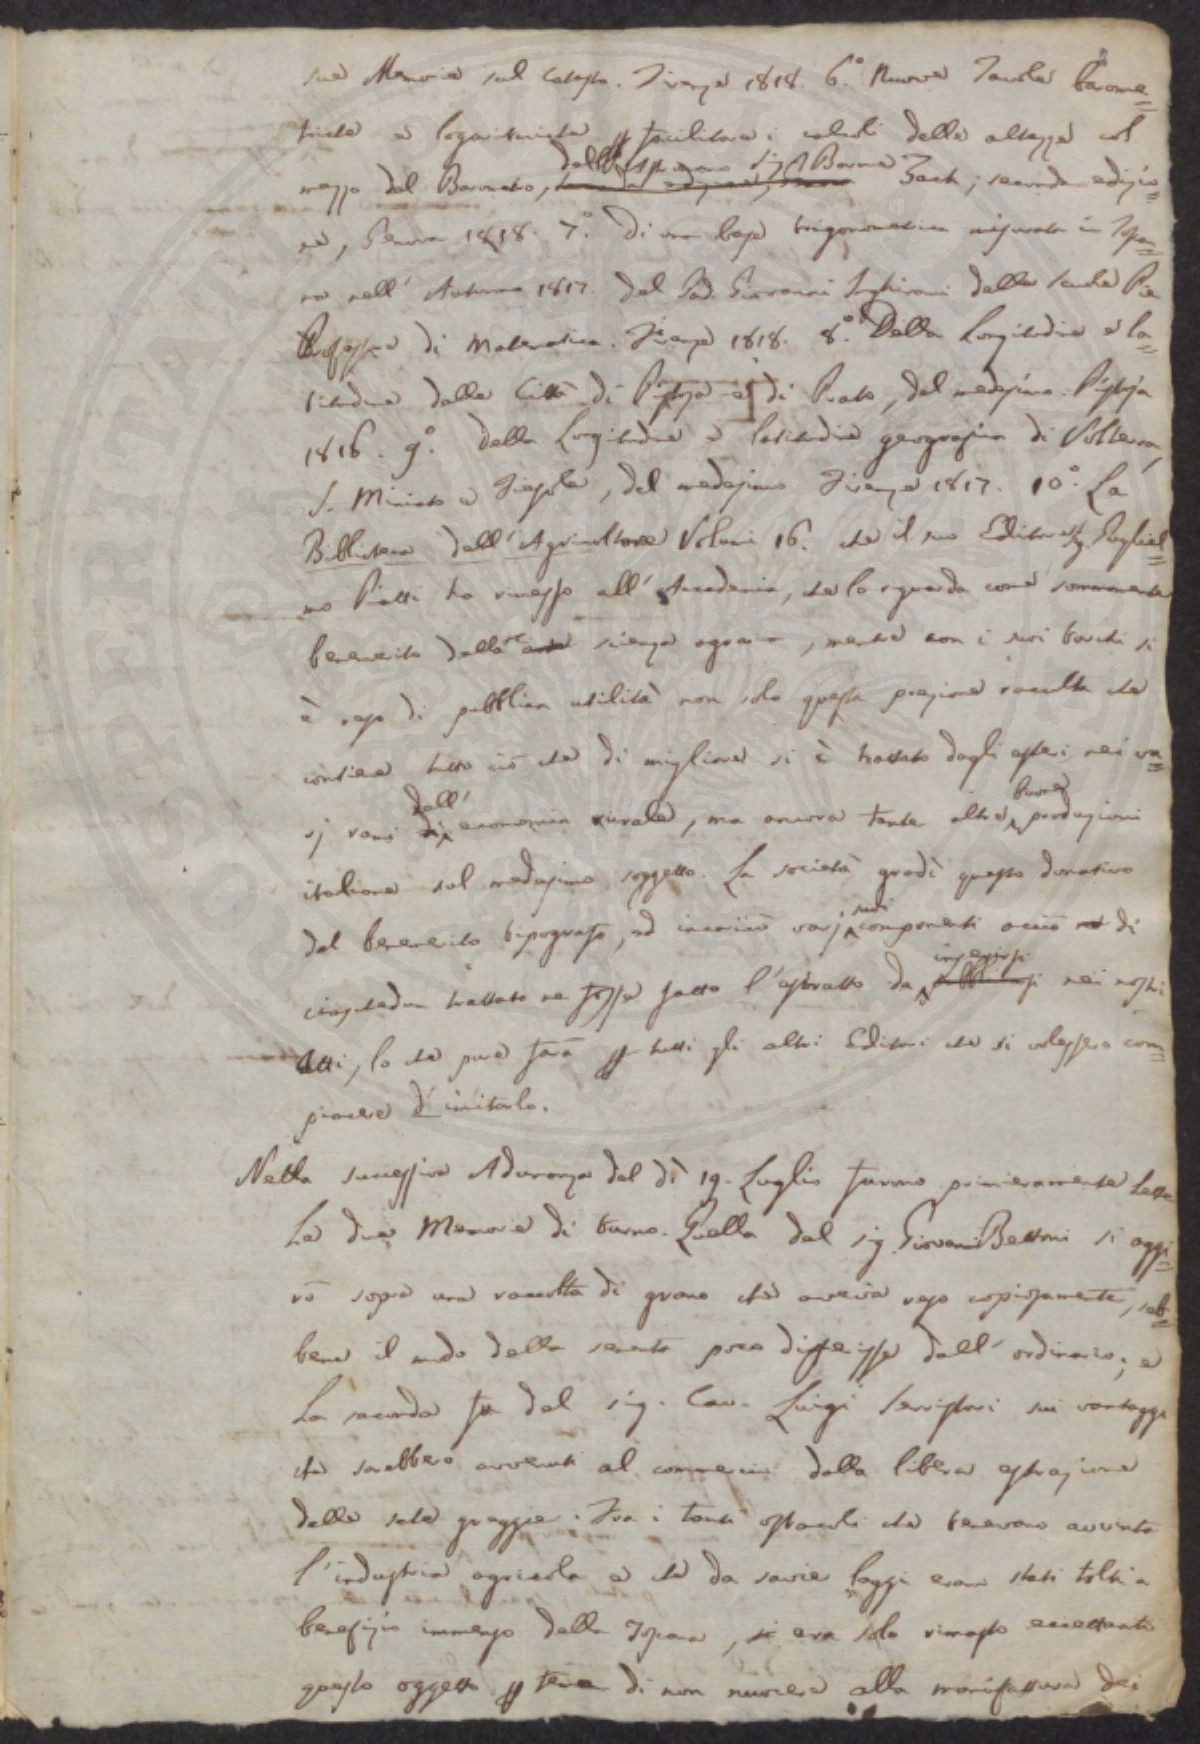 sue Memorie sul Catasto. Firenze 1818. 6.° Nuove Tavole barome=
triche e logaritmiche p facilitare i calcoli delle altezze col
mezzo del Barometro, dell' Sig. Barone Zach; seconda edizio=
ne, Genova 1818. 7.° Di una base trigonometrica misurata in Tosca=
na nell' Autunno 1817. del Pad. Giovanni Inghirami delle Scuole Pie
Professore di Matematica. Firenze 1818. 8.° Della Longitudine e la=
titudine delle Città di Pistoja e di Prato, del medesimo. Pistoja
1816. 9.° Della Longitudine e latitudine geografica di Volterra,
S. Miniato e Fiesole, del medesimo Firenze 1817. 10.° La
Biblioteca dell' Agricoltore Volumi 16. che il suo Editore Sig. Gugliel=
mo Piatti ha rimesso all' Accademia, che lo riguarda come sommamente
benemerito delle scienze agrarie, mentre con i suoi torchi si
è reso di pubblica utilità non solo questa preziosa raccolta che
contiene tutto ciò che di migliore si è trattato dagli esteri nei va=
rj rami dell' economia rurale, ma ancora tante altre buone produzioni
italiane sul medesimo soggetto. La società gradì questo donativo
del benemerito tipografo, ed incaricò varj suoi componenti acciò di
ciaschedun trattato ne fosse fatto l'estratto da inserirsi nei nostri
Atti, lo che pure farà p tutti gli altri Editori che si volessero com=
piacere d' imitarlo.
Nella successiva Adunanza del dì 19. Luglio furono primieramente lette
Le due Memorie di turno. Quella del sig. Giovanni Bettoni si aggi=
rò sopra una raccolta di grano che aveva reso copiosamente, seb=
bene il modo della sementa poco differisse dall' ordinario; e
La seconda fu del sig. Cav. Luigi Serristori sui vantaggi
che sarebbero avvenuti al commercio dalla libera estrazione
delle sete greggie. Fra i tanti ostacoli che tenevano avvinta
l'industria agricola e che da savie leggi erano stati tolti a
benefizio immenso della Toscana, era solo rimasto eccettuato
questo oggetto p tema di non nuocere alla manifattura dei